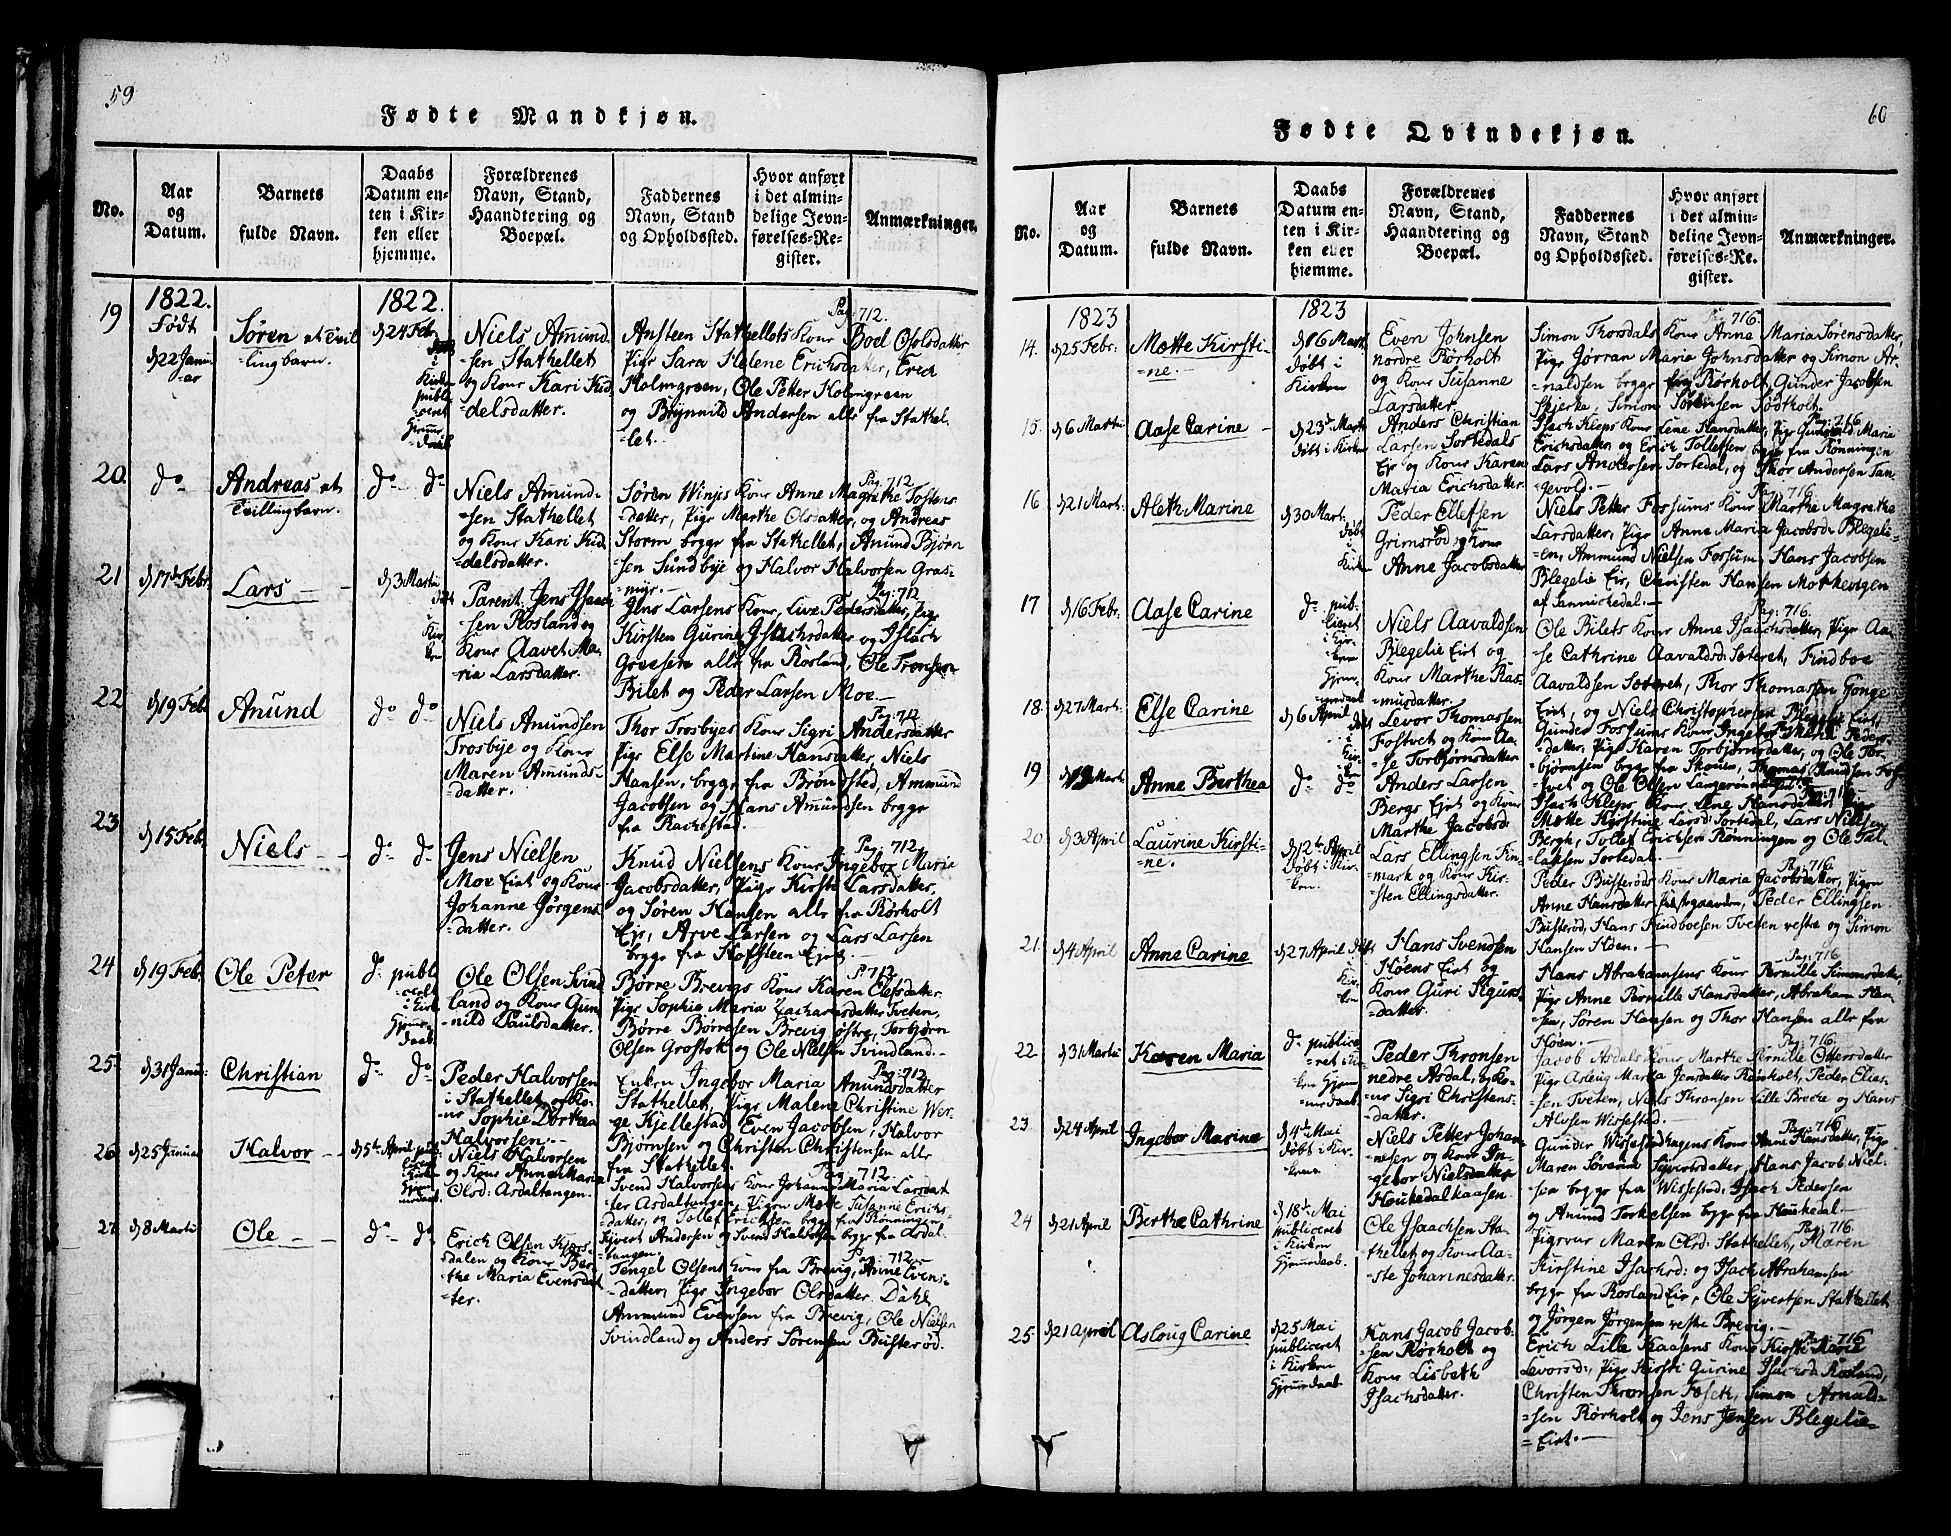 59
Fødte Mandkjøn.
No.
Aar
og
Datum.
Barnets
fulde Navn.
Daabs
Datum en-
ten i Kir-
ken eller
hjemme.
Forældrenes
Navn, Stand,
Haandtering og
Boepæl.
Faddernes
Navn, Stand
og Opholdssted.
Hvor anført
i det almin-
delige Jevn-
førelses-Re-
gister.
Anmærkninger.
19
1822.
Født
d 22 Janu
-ar
Søren et Tvil
-lingbarn.
1822.
d 24 Feb.
i
Kirken
publi
-ceret
Hjemme
-daab
Niels Amund
-sen Stathellet
og Kone Kari Kid
-delsdatter.
Pag 712.
Ansteen Stathellets Kone Bod Olsdatter
Pige Sara Helene Ericksdatter, Erich
Holmgreen, Ole Petter Holmgreen
og Brynnild Andersen alle fra Stathel
-let.
20.
do
Andreas et
Tvillingbarn.
do do
Niels Amund-
-sen Stathellet
og Kone Kari Kid
delsdatter.
Pag. 712
Søren Winjes Kone Anne Magrethe Tostens
-datter, Pige Marthe Olsdatter, og Andreas
Storm begge fra Stathellet, Anund Bjørn
-sen Sundbye og Halvor Halvorsen Gras-
-myr.
21
d 17d Febr.
Lars
d 3 Martii
døbt
i
Kir
ken
Parent. Jens Isaac
-sen Rosland og
Kone Aavet Ma-
ria Larsdatter.
Pag: 712
Jens Larsens Kone, Live Pedersdatter, Pige
Kirsten Gurine Isachsdatter og Isach
Graasen alle fra Rosland, Ole Tronsen
Bilet og Peder Larsen Moe.
22
d 19 Feb.
Anund
do do
Niels Amundsen
Trosbye og Kone
Maren Amunds-
-datter.
Pag. 712
Thor Trosbyes Kone Sigri Andersdatter
Pige Else Martine Hansdatter, Niels
Hansen, begge fra Brøndsted, Ammund
Jacobsen og Hans Amundsen begge
fra Rachestad.
23
d 15 Feb.
Niels
do do
Jens Nielsen
Moe Eiet og Kone
Johanne Jørgens
-datter.
Pag: 712
Knud Nielsens Kone Ingebor Maria
Jacobsdatter, Pige Kirsti Larsdatter,
og Søren Hansen alle fra Rørholt
Eje, Arve Larsen og Lars Larsen
begge fra Hofsteen Ejet.
24
d 19 Feb.
Ole Peter
do publi
-ceret
i Kirk
Hjemme
daab
Ole Olsen Svind
land og Kone Gun
nild Paulsdatter.
Pag: 712
Børre Brevigs Kone Karen Elefsdatter
Pige Sophie Maria Zachariasdatter Tveten,
Børre Børresen Brevig østre, Torbjørn
Olsen Grostok og Ole Nielsen Svindland.
25
d 31 Janu:
Christian
do do
Peder Halvorsen
i Stathellet og Ko-
ne Sophie Dorthea
Halvorsen.
Pag: 712
Enken Ingebor Maria Amundsdatter
Stathellet, Pige Malene Christine Wer-
ge Kjellestad, Even Jacobsen, Halvor
Bjørnsen og Christen Christensen alle
fra Stathellet.
26
d 25 Januar
Halvor
d 5te April publ
Hjemme
Niels Halvorsen
og Kone Anne Maria
Olsd: Asdaltangen.
Pag. 712
Svend Halvorsens Kone Johanne Maria Larsdat
ter Asdaltangen, Pigen Mette Susanne Erichs-
-datter, og Tollef Erichsen begge fra Rønningen
Syvert Andersen og Svend Halvorsen begge fra Asdal
-tangen.
27
d 8 Martii
Ole
do do
Erich Olsen Kjørs-
dalen og Kone Ber-
the Maria Evensdat
-ter.
Pag. 712
Tengel Olsens Kone fra Brevig, Anne Evens-
-datter, Pige Ingebor Olsdatter Dahl
Ammund Evensen fra Brevig, Ole Nielsen
Svindland og Anders Sørensen Busterød.
60
Fødte Qvindekjøn.
No.
Aar
og
Datum.
Barnets
fulde Navn.
Daabs
Datum en-
ten i Kir-
ken eller
hjemme.
Forældrenes
Navn, Stand,
Haandtering og
Boepæl.
Faddernes
Navn, Stand
og Opholdssted.
Hvor anført
i det almin-
delige Jevn-
førelses-Re-
gister.
Anmærkninger.
14.
1823
d 25 Febr:
Mette Kirsti-
-ne.
1823
d 16 Mart.
døbt i
Kirken
Even Johnsen
nordre Rørholt
og Kone Susanne
Larsdatter.
Pag. 716.
Simon Thorsdals Kone Anna Maria Sørensdatter,
Pige Jørran Maria Johnsdatter og Simon Ar-
naldsen begge fra Rørholt, Gunder Jacobsen
Skjerke, Simon Sørensen Sødtholt.
15.
d 6 Martii
Aase Carine
d 23d Marti
døbt i Kirken
Anders Christian
Larsen Tortedals
Eje og Kone Karen
Maria Erichsdatter.
Pag: 716
Isach Kleps Kone Lene Hansdatter, Pige Gunnild Maria
Erichsdatter og Erich Tollefsen begge fra Rønningen
Lars Andersen Tortedal, og Thor Andersen Tan
gevold.
16
d 21 Mart:
Aleth Marine
d 30 Mart.
døbt
i
Kirken
Peder Ellefsen
Grimsrød og Kone
Anne Jacobsdatter
Pag. 716
Niels Petter Fossums Kone Marthe Magrethe
Larsdatter, Pige Anne Maria Jacobsd: Blegeli-
-en, Ammund Nielsen Fossum, Hans Jacobsen
Blegelie Eie, Christen Hansen Mottkevigen
af Sannikedal.
17
d 16 Febr.
Aase Carine
do pub-
liceret
i Kir-
ken
Hjem-
medaab
Niels Aavaldsen
Blegelie Eiet og
Kone Marthe Ras-
musdatter.
Pag: 716.
Ole Bilets Kone Anne Isaachsdatter, Pige Aa-
se Cathrine Aavaldsd: Soteret, Findboe
Aavaldsen Soteret, Thor Thomassen Gonge
Eiet, og Niels Christophersen Blegelie Eiet.
18.
d 27 Mart.
Else Carine
d 6 April døbt
i
Kir-
ken
Levor Thomassen
Fostvet og Kone Aa-
se Torbjørnsdatter
Gunder Fossums Kone Ingebor Maria Peders-
datter, Pige Karen Torbjørnsdatter, og Ole Tor-
bjørnsen begge fra Skouen, Thomas Knudsen Fos-
-tvet og Ole Olsen Langerønningen.
19
d 13 Mart.
Anne Berthea
do do
Anders Larsen
Bergs Eiet og Kone
Marthe Jacobsd:
Pag: 716
Isach Kleps Kone Lene Hansdatter, Pige
Mette Kirstine Larsd: Tortedal, Lars Nielsen
Bergh, Tollef Erichsen Rønningen og Ole Tol-
-lafsen Tortedal.
20.
d 3 April
Laurine Kirsti-
-ne.
d 12te April
døbt i Kir-
ken.
Lars Ellingsen Fin-
mark og Kone Kir-
sten Ellingsdatter.
Pag: 716
Peder Busterøds Kone Maria Jacobsdatter, Pigen
Anne Hansdatter Prestegaarden, Peder Ellingsen
Busterød, Hans Findboesen Tveten vestre og Simon
Hansen Høen.
21.
d 4 April
Anne Carine
d 27 April døbt
i
Kir-
ken
Hans Svendsen
Høens Eiet og
Kone Guri Siguns-
-datter.
Pag: 716
Hans Abrahamsens Kone Pernille Simonsdatter,
Pige Anne Pernille Hansdatter, Abraham Han-
-sen, Søren Hansen og Thor Hansen alle fra
Høen.
22.
d 31 Martii
Karen Maria
do publice
-ret i Kir-
ken Hjem
-medaab
Peder Thronsen
nedre Asdal, og Ko-
ne Sigri Christens-
datter.
Pag: 716
Jacob Asdals Kone Marthe Pernille Ottersdatter
Pige Asloug Maria Jensdatter Rørholt, Peder Elie-
sen Tveten, Niels Thronsen Lille Brekke og Hans
Alvsen Wissestad.
23
d 24 April
Ingebor Marine
d 4de Mai
døbt i Kir-
kenn
Niels Petter Johan
nesen og Kone In-
gebor Nielsdatter
Houkedalkaasen.
Pag: 716
Gunder Wissestadhagens Kone Anne Hansdatter, Pige
Maren Søvarine Syversdatter, Hans Jacob Niel-
sen begge fra Wissestad, Isach Pedersen
og Anund Torkelsen begge fra Houkedal.
24
d 21 April
Berthe Cathrine
d 18de Mai
publiceret
i Kirken
Hjemmedaab.
Ole Isaachsen Sta-
thellet og Kone Aa-
ste Johannesdatter.
Pag. 716.
Pigerne Maren Olsd: Stathellet, Maren
Kirstine Isachsd: og Isach Abrahamsen
begge fra Rosland Eie, Ole Syvertsen Stathellet
og Jørgen Jørgensen vestre Brevig.
25
d 21 April
Asloug Carine
d 25 Mai
publiceret
i Kirken
Hjemmedaab
Hans Jacob Jacob-
sen Rørholt og
Kone Lisbeth
Isachsdatter.
Pag: 716
Erich Lille Kaasens Kone Kirsti Maria
Levorsd:, Pige Kirsti Gurine Isachsd: Rosland,
Christen Thronsen Foseth, Simon Arnald-
-sen Rørholt og Jens Jensen Blegelie-
-Eiet.